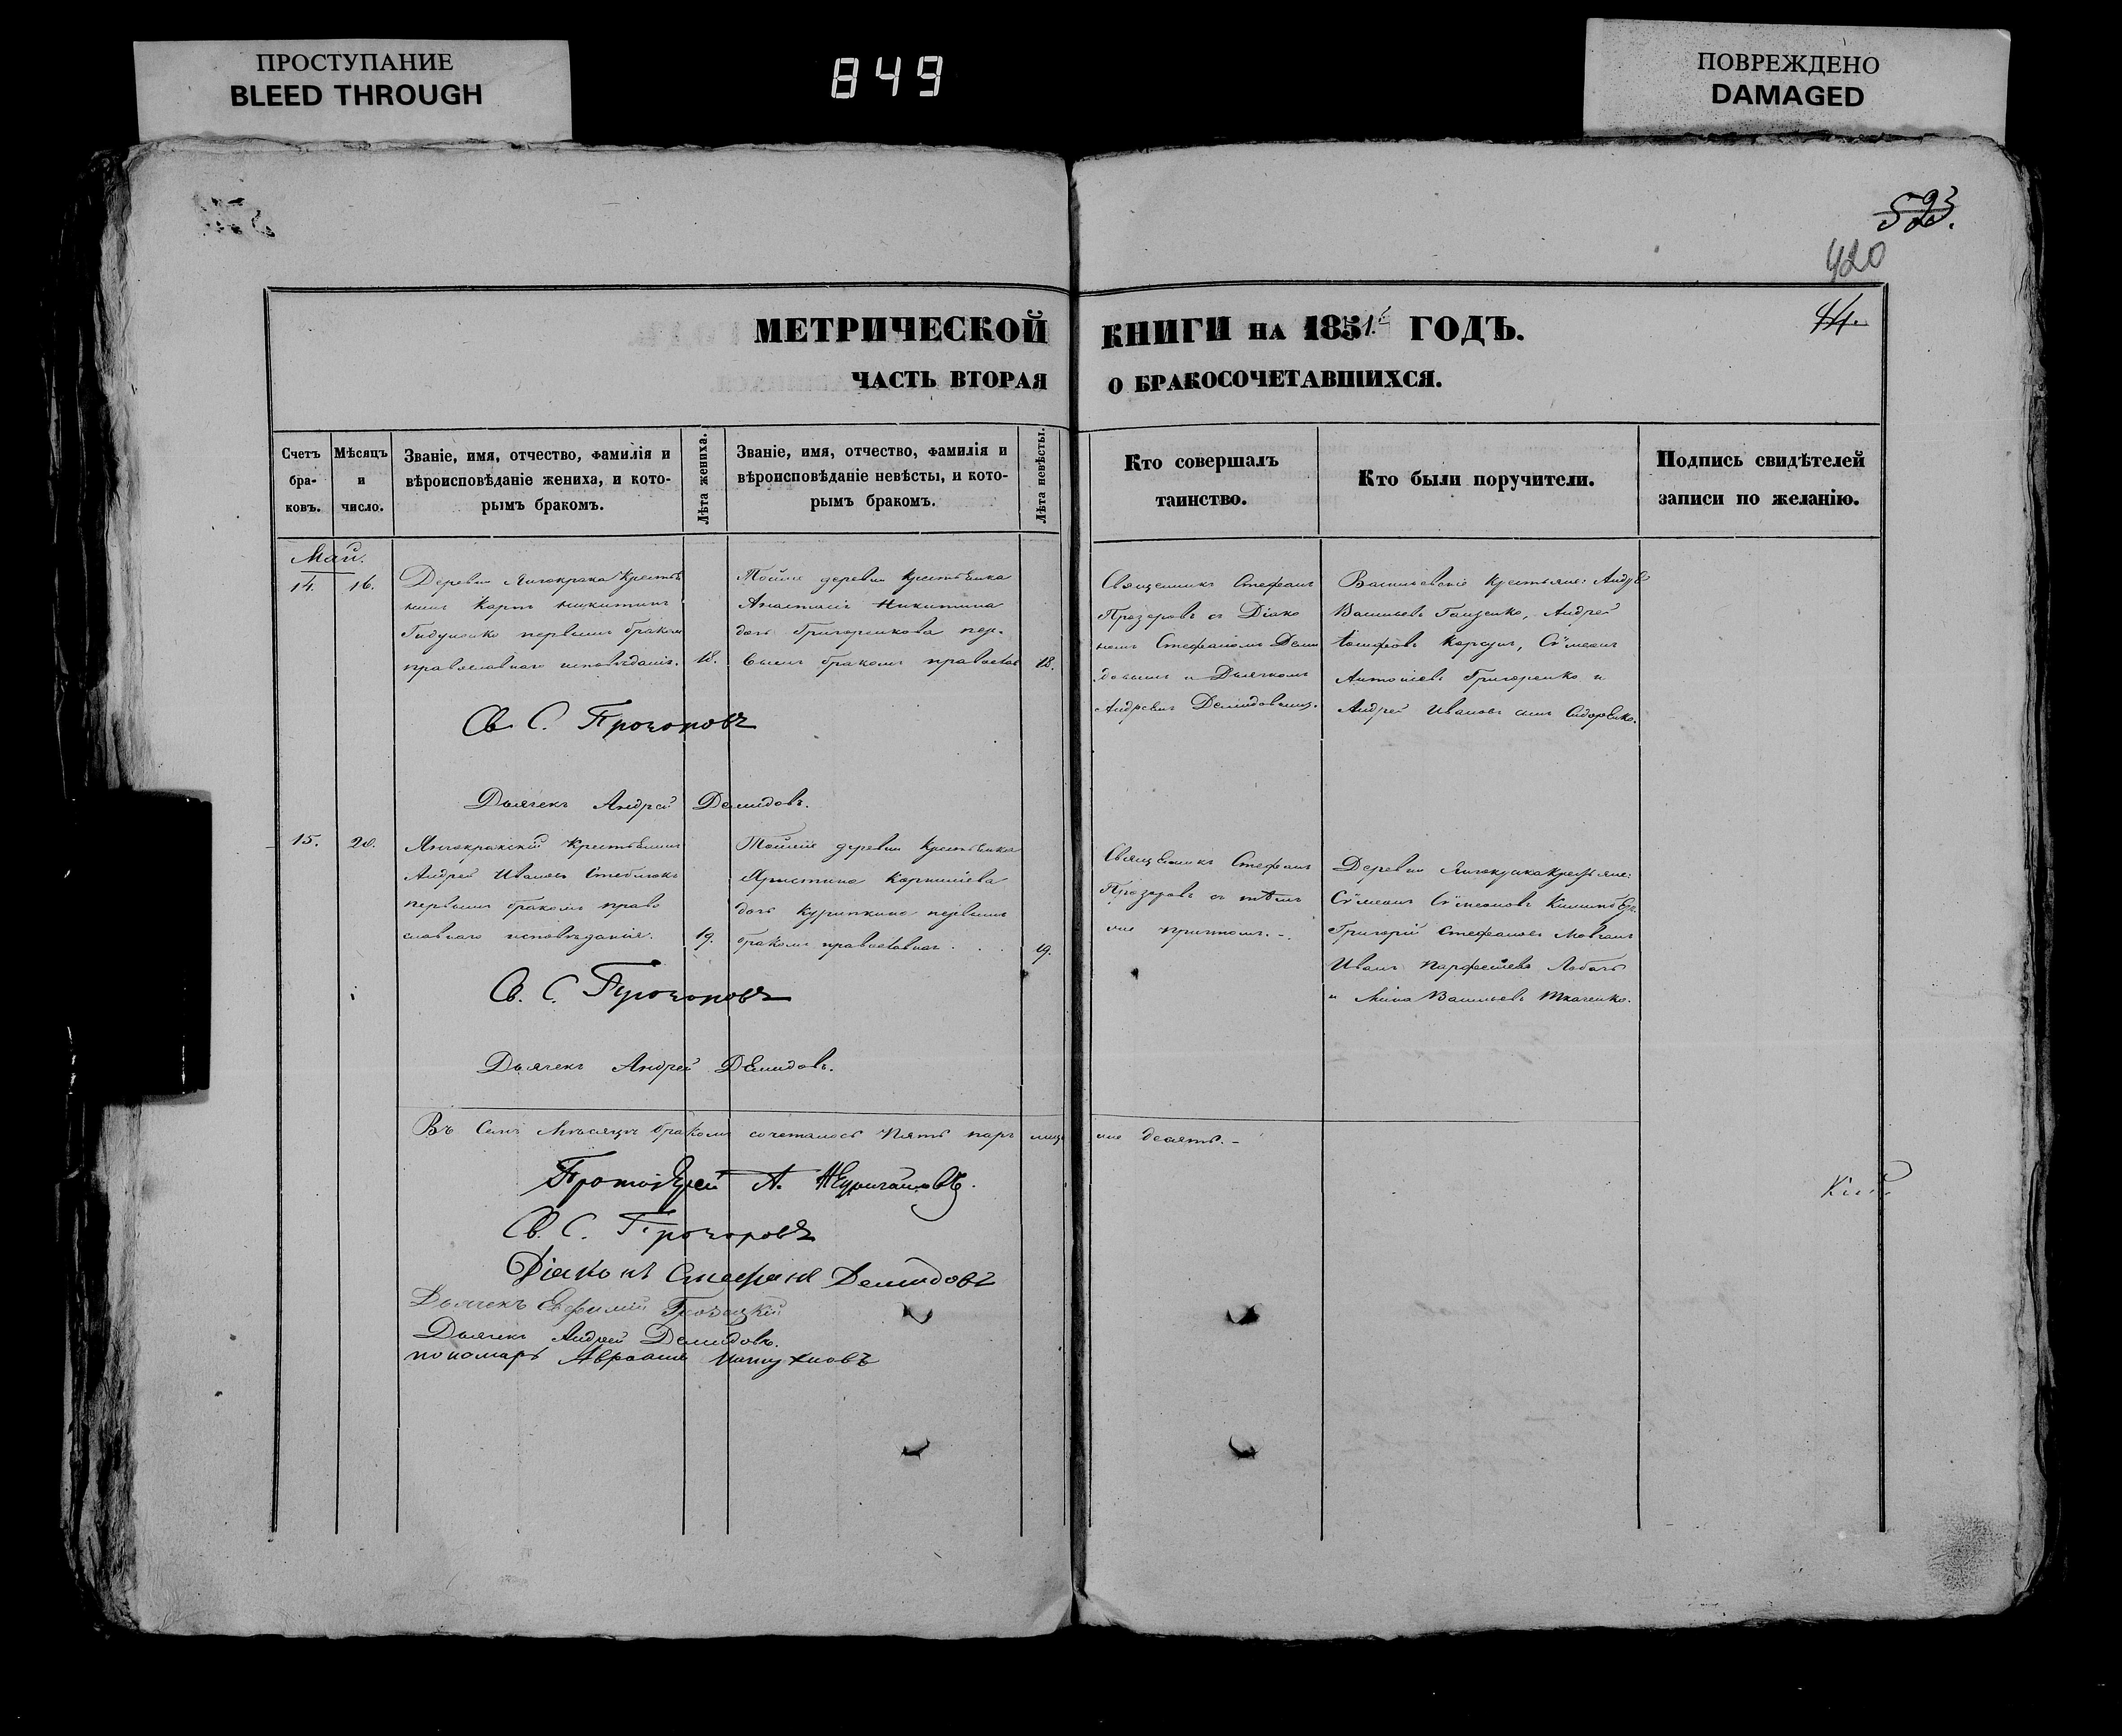 ПРОСТУПАНИЕ
BLEED THROUGH
849
ПОВРЕЖДЕНО
DAMAGED
593.
420
44.
МЕТРИЧЕСКОЙ КНИГИ НА 1851. ГОДЪ.
ЧАСТЬ ВТОРАЯ О БРАКОСОЧЕТАВШИХСЯ.
Счетъ бра-ковъ.
Мѣсяцъ и число.
Званіе, имя, отчество, фамилія и
вѣроисповѣданіе жениха, и кото-
рымъ бракомъ.
Лѣта жениха.
Званіе, имя, отчество, фамилія и
вѣроисповѣданіе невѣсты, и кото-
рымъ бракомъ.
Лѣта невѣсты.
Кто совершалъ
таинство.
Кто были поручители.
Подпись свидѣтелей
записи по желанію.
Май.
14. 16.
Деревни Янчокрака Крестья
нинъ Карпъ Никитинъ
первымъ бракомъ
православнаго исповѣданія. 18.
Тойже деревни крестьянка
Анастасія Никитина
дочь Григоренкова пер-
вымъ бракомъ православ 18.
Священникъ Стефанъ
Прозоровъ съ Діако
номъ Стефаномъ Деми
довымъ и Дьячкомъ
Андреемъ Демидовымъ.
Васильевскіе крестьяне: Андрей
Васильевъ Ганзенко, Андрей
Іосифовъ Корсунъ, Сѵмеонъ
Антоніевъ Григоренко и
Андрей Ивановъ сынъ Сидоренко.
Св. С. Прозоровъ
Дьячекъ Андрей Демидовъ.
15. 20.
Янчокракскій Крестьянинъ
Андрей Ивановъ Стеблюкъ
первымъ бракомъ право
славнаго исповѣданія. 19.
Тойже деревни крестьянка
Христина Корніліева
дочь Курипкина первымъ
бракомъ православнаг. 19.
Священникъ Стефанъ
Прозоровъ съ тѣмъ
же причтомъ.
Деревни Янчокрака Крестьяне:
Сѵмеонъ Сѵмеоновъ
Григорій Стефановъ Мовчанъ
Иванъ Парфеніевъ Лобачъ
и Мина Васильевъ Ткаченко.
Св. С. Прозоровъ
Дьячекъ Андрей Демидовъ.
Въ Семъ мѣсяцѣ бракомъ сочеталось Пять паръ лицъ же десять.
Протоіерей А.
Св. С. Прозоровъ
Діаконъ Стефанъ Демидовъ
Дьячекъ Евфимій
Дьячекъ Андрей Демидовъ.
пономарь Авраамъ